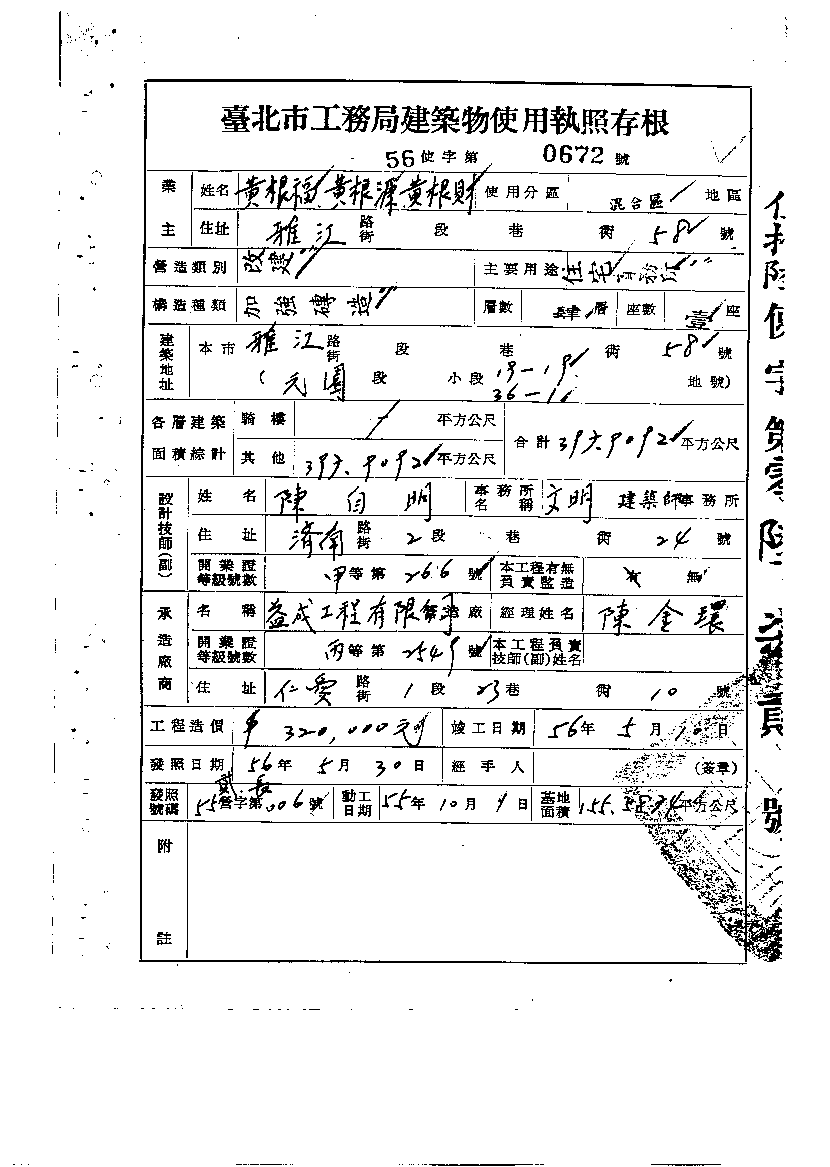 臺北市工務局建築物使用執照存根
56使字第 0672 號
業主 姓名 黃根福 黃根源 黃根財 使用分區 混合區 地區
住址 雅江 路街 段 巷 衖 58 號
營造類別 改建 主要用途 住宅
構造種類 加強磚造 層數 肆 層 座數 壹 座
建築地址 本市 雅江 路街 段 巷 衖 58 號
(元園 段 小段 19-19 地號)
36-1
各層建築面積綜計 騎樓 平方公尺 合計 396.9092 平方公尺
其他 396.9092 平方公尺
設計技師(副) 姓名 陳自明 事務所名稱 文明 建築師事務所
住址 濟南 路街 2段 巷 衖 24 號
開業證等級號數 甲等第 266 號 本工程有無負責監造 有 無
承造廠商 名稱 益成工程有限 造廠 經理姓名 陳金環
開業證等級號數 丙等第 號 本工程負責技師(副)姓名
住址 仁愛 路街 1段 23巷 衖 10 號
工程造價 $ 320,000元 竣工日期 56年 5月 10日
發照日期 56年 5月 30日 經手人 (簽章)
發照號碼 55營字第 006 號 動工日期 55年 10月 日 基地面積 155.5874 平方公尺
附註
使字第零陸 貳號